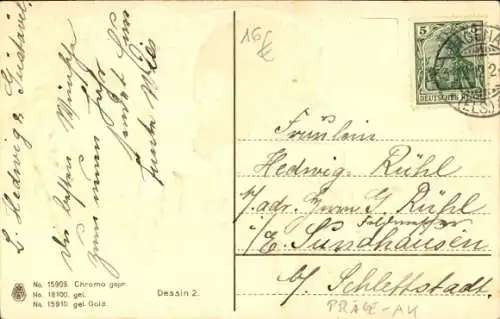 L. Hedwig & Gustavel
Die besten Wünsche
zum neuen Jahr
sendet Euch
16 E
5
DEUTSCHES REICH
(ELS.)
Fräulein
Hedwig Rühl
p/adr. Herrn G. Rühl
Feldmesser
i/E. Sundhausen
b/ Schlettstadt.
PRÄGE-AK
No. 15909 Chromo gepr.
No. 16100. gel.
No. 15910. gel. Gold.
Dessin 2.